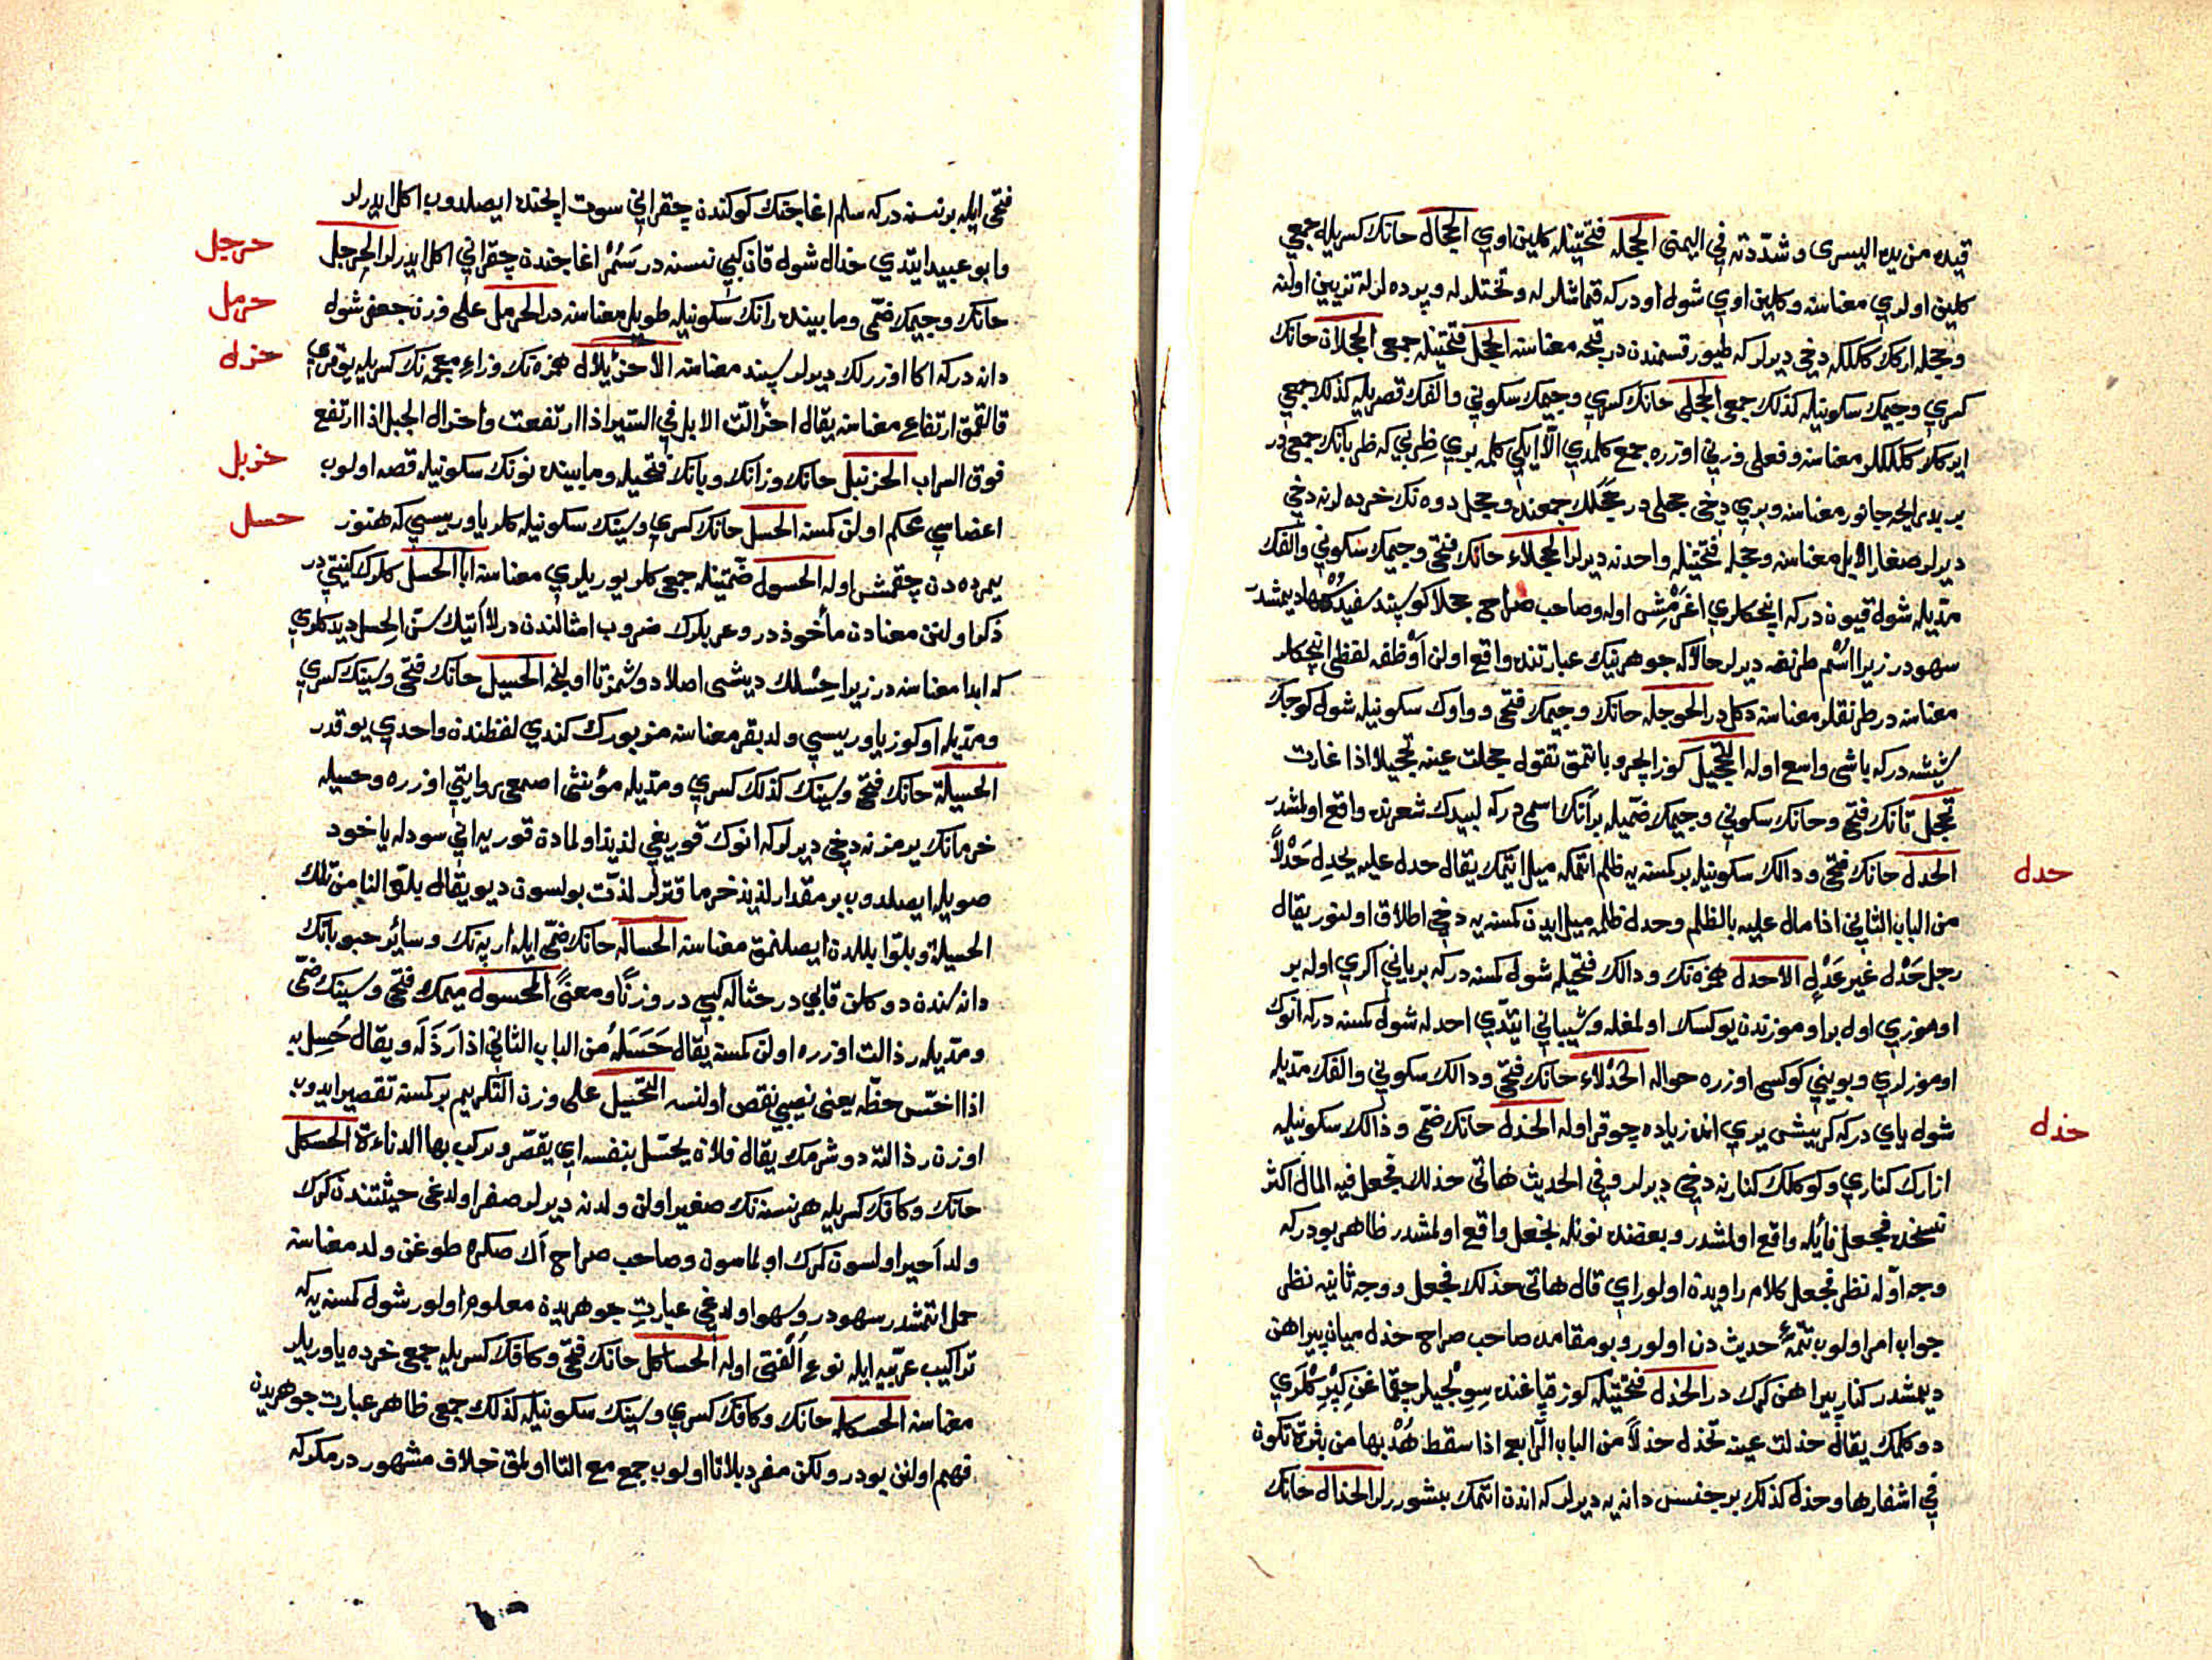 قيده من يده اليسرى وشدّدته في اليمنى الحجله فتحتيله كلين اوي الحجال حانك كسريله جمعي
كلين اولري معناسنه وكلين اوي شول اودركه قماشلرله وتختلرله وپرده لرله تزيين اولنه
وحجله اركك ككلكه دخي ديرلركه طيور قسمندن در قبجه معناسنه الحجل فتحتيله جمعي الحجلان حانك
كسري وجيمك سكونيله كذلك جمعي الحجلى حانك كسري وجيمك سكوني والفك قصريله كذلك جمعي
ايركك ككلكلر معناسنه وفعلى وزني اوزره جمع كلمدي الّا ايكي كلمه بوي ظربي كه ظربانك جمعي در
بر يديرايحه جانور معناسنه وبري دخي حجلى در حجلك جمعنده وحجل دوه نك خرده لرنه دخي
ديرلر صغار الابل معناسنه وحجله فتحتيله واحدنه ديرلر الحجلاء حانك فتحي وجيمك سكوني والفك
مدّيله شول قيون دركه اينجكلري اغرمش اوله وصاحب صراح حجلا كوسپند سفيد ديمشدر
سهودر زيرا اسم طرنغه ديرلر حالاكه جوهرينك عبارتنده واقع اولن اوظفه لفظي اينجكلر
معناسنه در طرنقلر معناسنه دكل در الحوجله حانك وجيمك فتحي وواوك سكونيله شول كوجك
شيشه دركه باشى واسع اوله التحجيل كوز ايچرو باتمق تقول حجلت عينه تحجيلا اذا غارت
تحجل تانك فتحي وحانك سكوني وجيمك ضميله برآنك اسمي دركه لبيدك شعرنده واقع اولمشدر
الحدل حانك فتحي ودالك سكونيله بر كمسنه يه ظلم اتمكه ميل ايتمك يقال حدل عليه يحدل حَدْلًا
من الباب الثاني اذا مال عليه بالظلم وحدل ظلمه ميل ايدن كمسنه يه دخي اطلاق اولنور يقال
رجل حَدْل غير عَدْلٍ الاحدل همزه نك ودالك فتحيله شول كمسنه دركه بر ياني اكري اوله بر
اوموزي اول بر اوموزندن يوكسك اولمغله وشيباني ايتدي احدل شول كمسنه دركه انوك
اوموزلري وبويني كوكسى اوزره حواله الحدلاء حانك فتحي ودالك سكوني والفك مدّيله
شول ياي دركه كريشى يري اندن زياده چوقر اوله الحذل حانك ضمي وذالك سكونيله
ازارك كناري وكوكلك كنارنه دخي ديرلر وفي الحديث هاتي حذلك فجعل فيه المال اكثر
نسخده فجعل فائله واقع اولمشدر وبعضنده نونله نجعل واقع اولمشدر ظاهر بودركه
وجه اوله نظر فجعل كلام راويدن اولور اي قال هاتي حذلك فجعل ووجه ثانيه نظر
جواب امر اولوب تتمۀ حديث دن اولور وبو مقامده صاحب صراح حذل ميان پيراهن
ديمشدر كنار پيراهن كرك در الحذل فتحتيله كوز قپاغنده سوٍلجيلر چقماغن كپرٍكلري
دوكلمك يقال حذلت عينه تحذل حذلًا من الباب الرابع اذا سقط هُدْبها من بثرة تكون
في اشفارها وحذل كذلك بر جنس دانه يه ديرلركه اندن اتمك پيشوررلر الحذال حانك
حدل
حذل
فتحي ايله بر نسنه دركه سلم اغاجنك كوكندن چقر اني سوت ايچنده ايصلدوب اكل ايدرلر
وابو عبيد ايتدي حذال شول قان كبي نسنه در سَمُر اغاجندن چقر اني اكل ايدرلر الحرجل
حانك وجيمك ضمّي وما بينده رانك سكونيله طويل معناسنه در الحرمل على وزن جعفر شول
دانه دركه اكا اوزرلك ديرلر سپند معناسنه الاحزئلال همزه نك وزاء معجمه نك كسريله يوقري
قالقمق ارتفاع معناسنه يقال احزالّت الابل في السير اذا ارتفعت واحزال الجبل اذا ارتفع
فوق السراب الحزنبل حانك وزانك وبانك فتحيله وما بينده نونك سكونيله قصه اولوب
اعضاسي محكم اولن كمسنه الحسل حانك كسري وسينك سكونيله كلر ياوريسى كه هنوز
يمرده دن چقمش اوله الحسول ضمتيله جمعي كلر يوريلري معناسنه ابا الحسل كلرك كنيتي در
ذكر اولنن معنادن مأخوذ در وعربلرك ضروب امثالندن در لا آتيك سنّ الحسل ديدكلري
كه ابدا معناسنه در زيرا حِسْلك ديشى اصلا دوشمز تا اولنجه الحسيل حانك فتحي وسينك كسري
ومدّيله اوكوز ياوريسي ولد بقر معناسنه مزبورك كندي لفظندن واحدي يوقدر
الحسيلة حانك فتحي وسينك كذلك كسري ومدّيله مؤنثى اصمعى روايتي اوزره وحسيله
خرمانك يرمزنه دخي ديرلركه انوك قوريغي لذيذ اولمادن قوريه اني سودله ياخود
صويله ايصلدوب بر مقدار لذيذ خرما قترلر لذّت بولسون ديو يقال بلّوا لنا من تلك
الحسيلة وبلّوا بللدن ايصلنمق معناسنه الحساله حانك ضمّي ايله ارپه نك وسائر حبوباتك
دانه سندن دوكلن قابي در حثاله كبي در وزنًا ومعنًى المحسول ميمك فتحي وسينك ضمّي
ومدّيله رذالت اوزره اولن كمسنه يقال حَسَلَهُ من الباب الثاني اذا اَرْذَلَه ويقال حُسِل به
اذا اخسّ حظه يعنى نصيبي نقص اولنسه التحسيل على وزن التكريم بر كمسنه تقصير ايدوب
اوزن رذالته دوشرمك يقال فلان يحسّل بنفسه اي يقصّر ويركب بها الدناءة الحسكل
حانك وكافك كسريله هر نسنه نك صغير اولن ولدنه ديرلر صفر اولدغى حيثتندن كرك
ولد اَحير اولسون كرك اولماسون وصاحب صراح اك صكره طوغن ولد معناسنه
حمل اتمشدر سهودر وسهو اولدغي عبارتِ جوهريدن معلوم اولور شول كمسنه يه كه
تراكيب عربيه ايله نوع اُلْفتى اوله الحساكل حانك فتحي وكافك كسريله جمعي خرده ياوريلر
معناسنه الحسكله حانك وكافك كسري وسينك سكونيله كذلك جمعي ظاهر عبارت جوهريدن
فهم اولنن بودر ولكن مفرد بلا تا اولوب جمع مع التا اولمق خلاف مشهوردر مكركه
حرجل
حرمل
حزل
حزبل
حسل